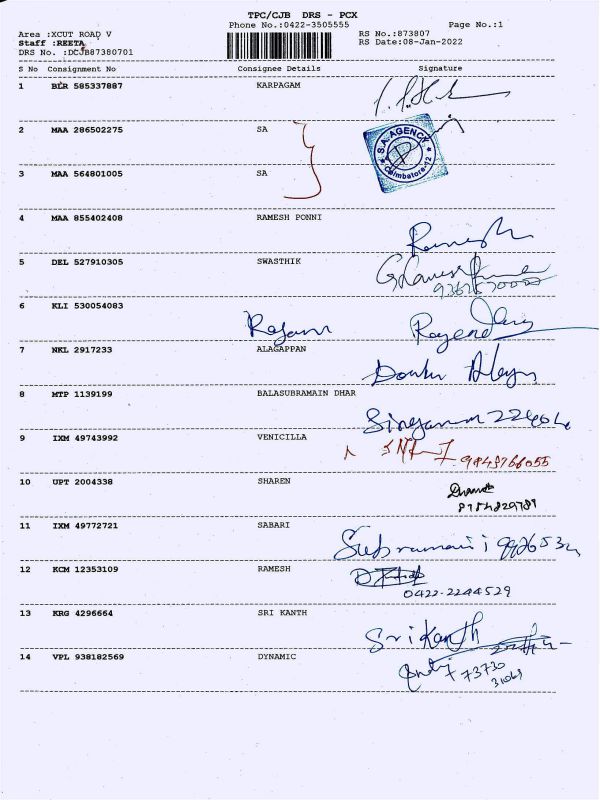 TPC/CJB DRS - PCX
Phone No.:0422-3505555
Page No.:1
Area :XCUT ROAD V
RS No.:873807
Staff :REETA
RS Date:08-Jan-2022
DRS No. :DCJB87380701
S No Consignment No Consignee Details Signature
1 BLR 585337887 KARPAGAM
2 MAA 286502275 SA
S.A. AGENCY
Coimbatore-12
3 MAA 564801005 SA
4 MAA 855402408 RAMESH PONNI
Ramesh
5 DEL 527910305 SWASTHIK
6 KLI 530054083
7 NKL 2917233 ALAGAPPAN
8 MTP 1139199 BALASUBRAMAIN DHAR
9 IXM 49743992 VENICILLA
9843766055
10 UPT 2004338 SHAREN
11 IXM 49772721 SABARI
12 KCM 12353109 RAMESH
0422-2244529
13 KRG 4296664 SRI KANTH
Srikanth
14 VPL 938182569 DYNAMIC
73730